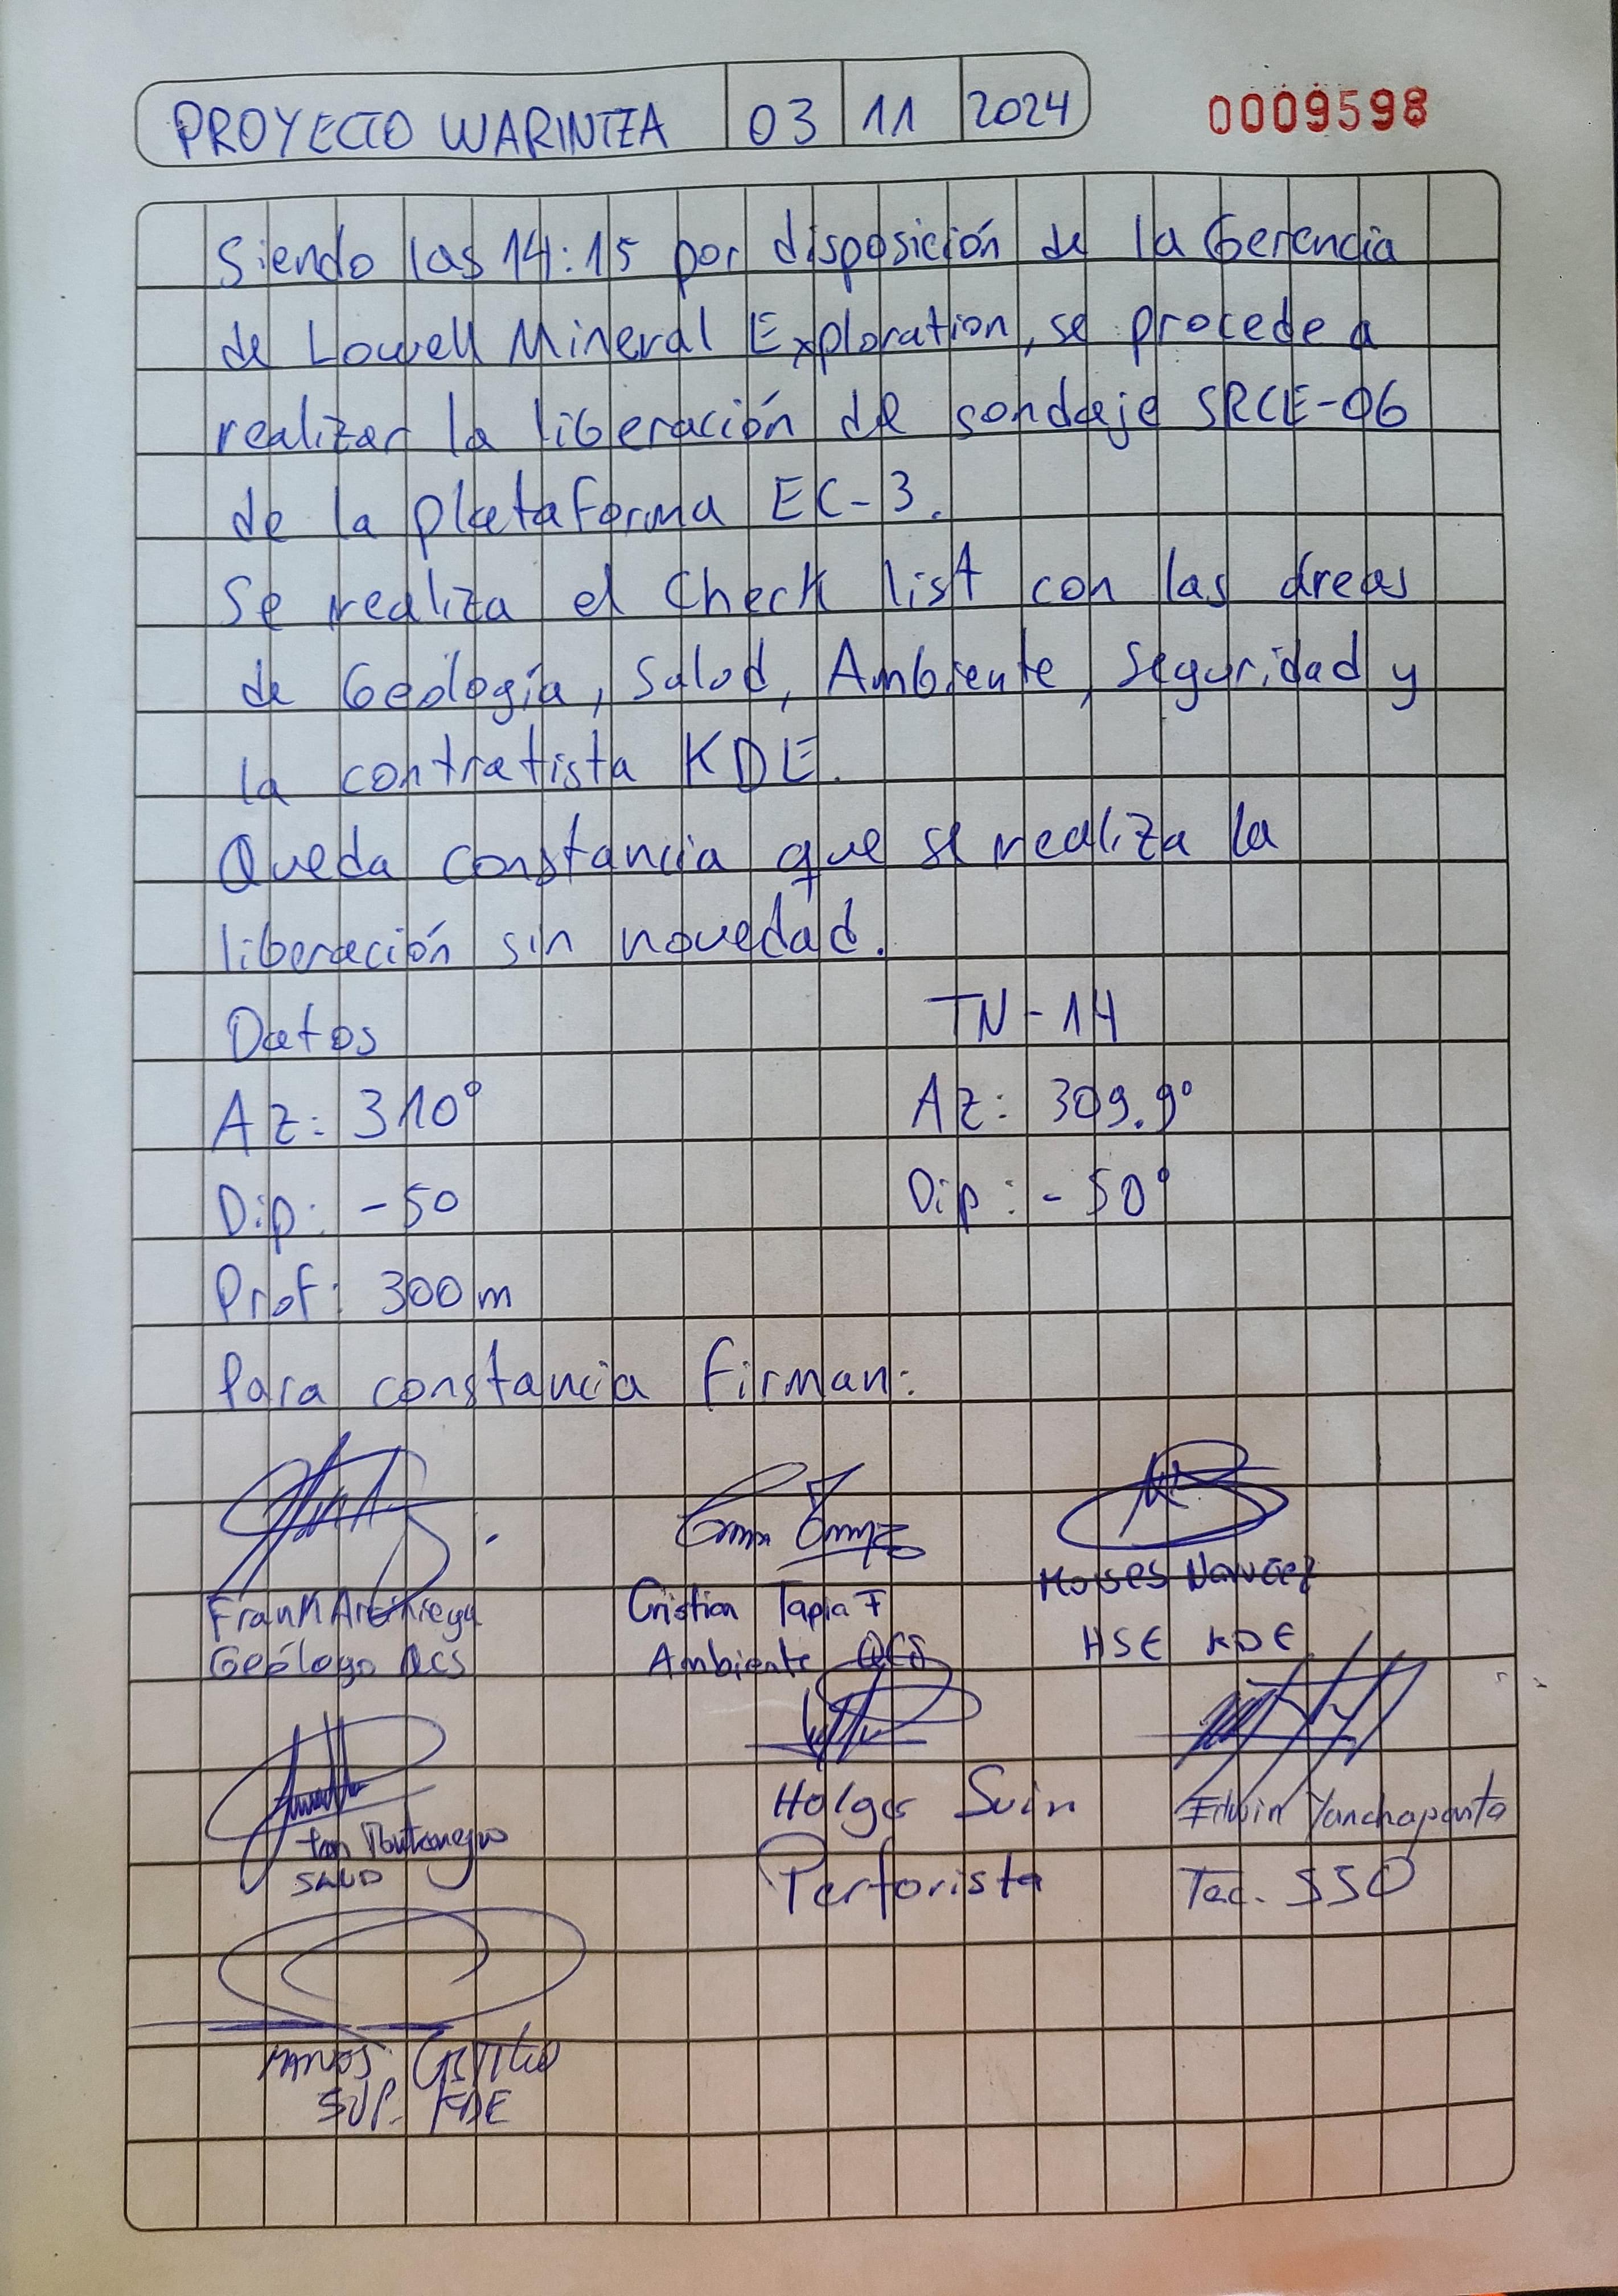 PROYECTO WARINTZA 03 11 2024 0009598
Siendo las 14:15 por disposición de la Gerencia
de Lowell Mineral Exploration, se procede a
realizar la liberación de sondaje SRCE-06
de la plataforma EC-3.
Se realiza el Check list con las áreas
de Geología, Salud, Ambiente, Seguridad y
la contratista KDE.
Queda constancia que se realiza la
liberación sin novedad.
Datos TN-14
Az: 310° Az: 309.9°
Dip: -50 Dip: -50°
Prof: 300m
Para constancia firman:
Frank Arciniega Cristian Tapia F Moises
Geólogo QCS Ambiente QCS HSE KDE
Montenegro Holger Suin Edwin Yanchapanta
SALUD Perforista Tec. SSO
SUP. KDE